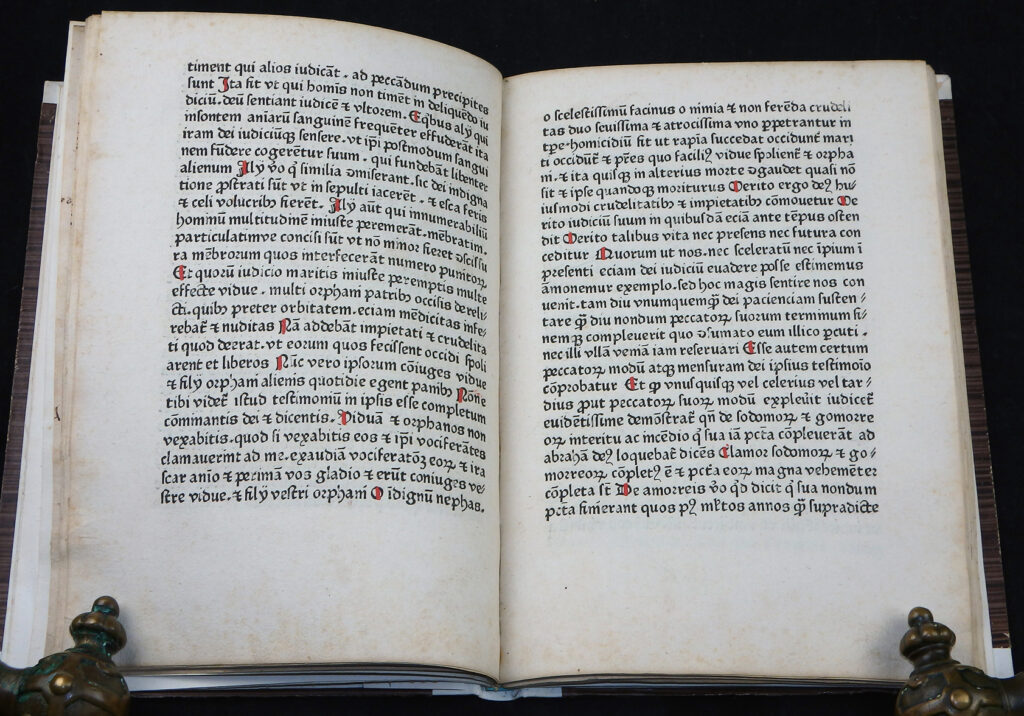 timent qui alios iudicāt . ad peccādum precipites
sunt Ita fit vt qui homīs non timēt in deliquēdo iu
diciū. deū sentiant iudicē ⁊ vltorem. Eq̇bus alij qui
insontem aniarū sanguinē frequēter effuderāt ita
iram dei iudiciūq̨ sensere. vt ip̄i postmodum sangui
nem fūdere cogerētur suum . qui fundebāt libenter
alienum Alij v̊o q̇ similia amiserant. sic dei indigna
tione ꝓstrati sūt vt in sepulti iacerēt . ⁊ esca feris
⁊ celi volucribꝫ fierēt. Alij aūt qui innumerabiliū
hominū multitudinē iniuste peremerāt. mēbratim.
particulatimve concisi sūt vt nō minor fieret discissu
ra mēbrorum quos interfecerāt numero punitoꝝ
Et quorū iudicio maritis iniuste peremptis multe
effecte vidue . multi orphani patribꝫ occisis dereli
cti. quibꝫ preter orbitatem. eciam mēdicitas infe⸗
rebat̄ ⁊ nuditas Nā addebāt impietati ⁊ crudelita
ti quod deerat. vt eorum quos fecissent occidi spoli
arent et liberos Nūc vero ipsorum cōiuges vidue
⁊ filij orphani alienis quotidie egent panibꝫ Nōne
tibi videt̄ istud testimoniū in ipsis esse completum
cominantis dei ⁊ dicentis. Viduā ⁊ orphanos non
vexabitis. quod si vexabitis eos ⁊ ip̄i vociferātes
clamauerint ad me. exaudiā vociferatōꝫ eoꝝ ⁊ ira
scar anio ⁊ perimā vos gladio ⁊ erūt coniuges ve⸗
stre vidue. ⁊ filij vestri orphani O idignū nephas.
o scelestissimū facinus o nimia ⁊ non ferēda crudeli
tas duo seuissima ⁊ atrocissima vno ꝑpetrantur in
tꝑe. homicidiū fit ut rapīa succedat occidunt̄ mari
ti occidūt̄ ⁊ pr̄es quo faciliꝰ vidue spolient̄ ⁊ orpha
ni. ⁊ ita quisq̨ in alterius morte ꝯgaudet quasi nō
sit ⁊ ipse quandoq̨ moriturus Merito ergo deꝰ hu⸗
iusmodi crudelitatibꝫ ⁊ impietatibꝫ cōmouetur Me
rito iudiciū suum in quibusdā eciā ante tēpus osten
dit Merito talibus vita nec presens nec futura con
ceditur Quorum ut nos. nec sceleratū nec ipium ī
presenti eciam dei iudiciū euadere posse estimemus
āmonemur exemplo. sed hoc magis sentire nos con
uenit. tam diu vnumquemq̨ dei pacienciam susten⸗
tare ꝙ̄ diu nondum peccatoꝝ suorum terminum fi⸗
nemq̨ compleuerit quo ꝯsumato eum illico ꝑcuti .
nec illi vllā veniā iam reseruari Esse autem certum
peccatoꝝ modū atq̨ mensuram dei ipsius testimoīo
cōprobatur Et ꝙ vnusquisq̨ vel celerius vel tar⸗
dius ꝓut peccatoꝝ suoꝝ modū expleūit iudicet̄
euidētissime demōstrat̄ qn̄ de sodomoꝝ ⁊ gomorre
oꝝ interitu ac incēdio q̇ sua iā pctā cōpleuerāt ad
abrahā deꝰ loquebat̄ dicēs Clamor sodomoꝝ ⁊ go⸗
morreoꝝ. cōpletꝰ ē ⁊ pctā eoꝝ magna vehemēter
cōpleta sūt De amorreis v̊o q̇d dicit q̇ sua nondum
pctā finierant quos pꝰ ml̄tos annos ꝙ̄ supradicte